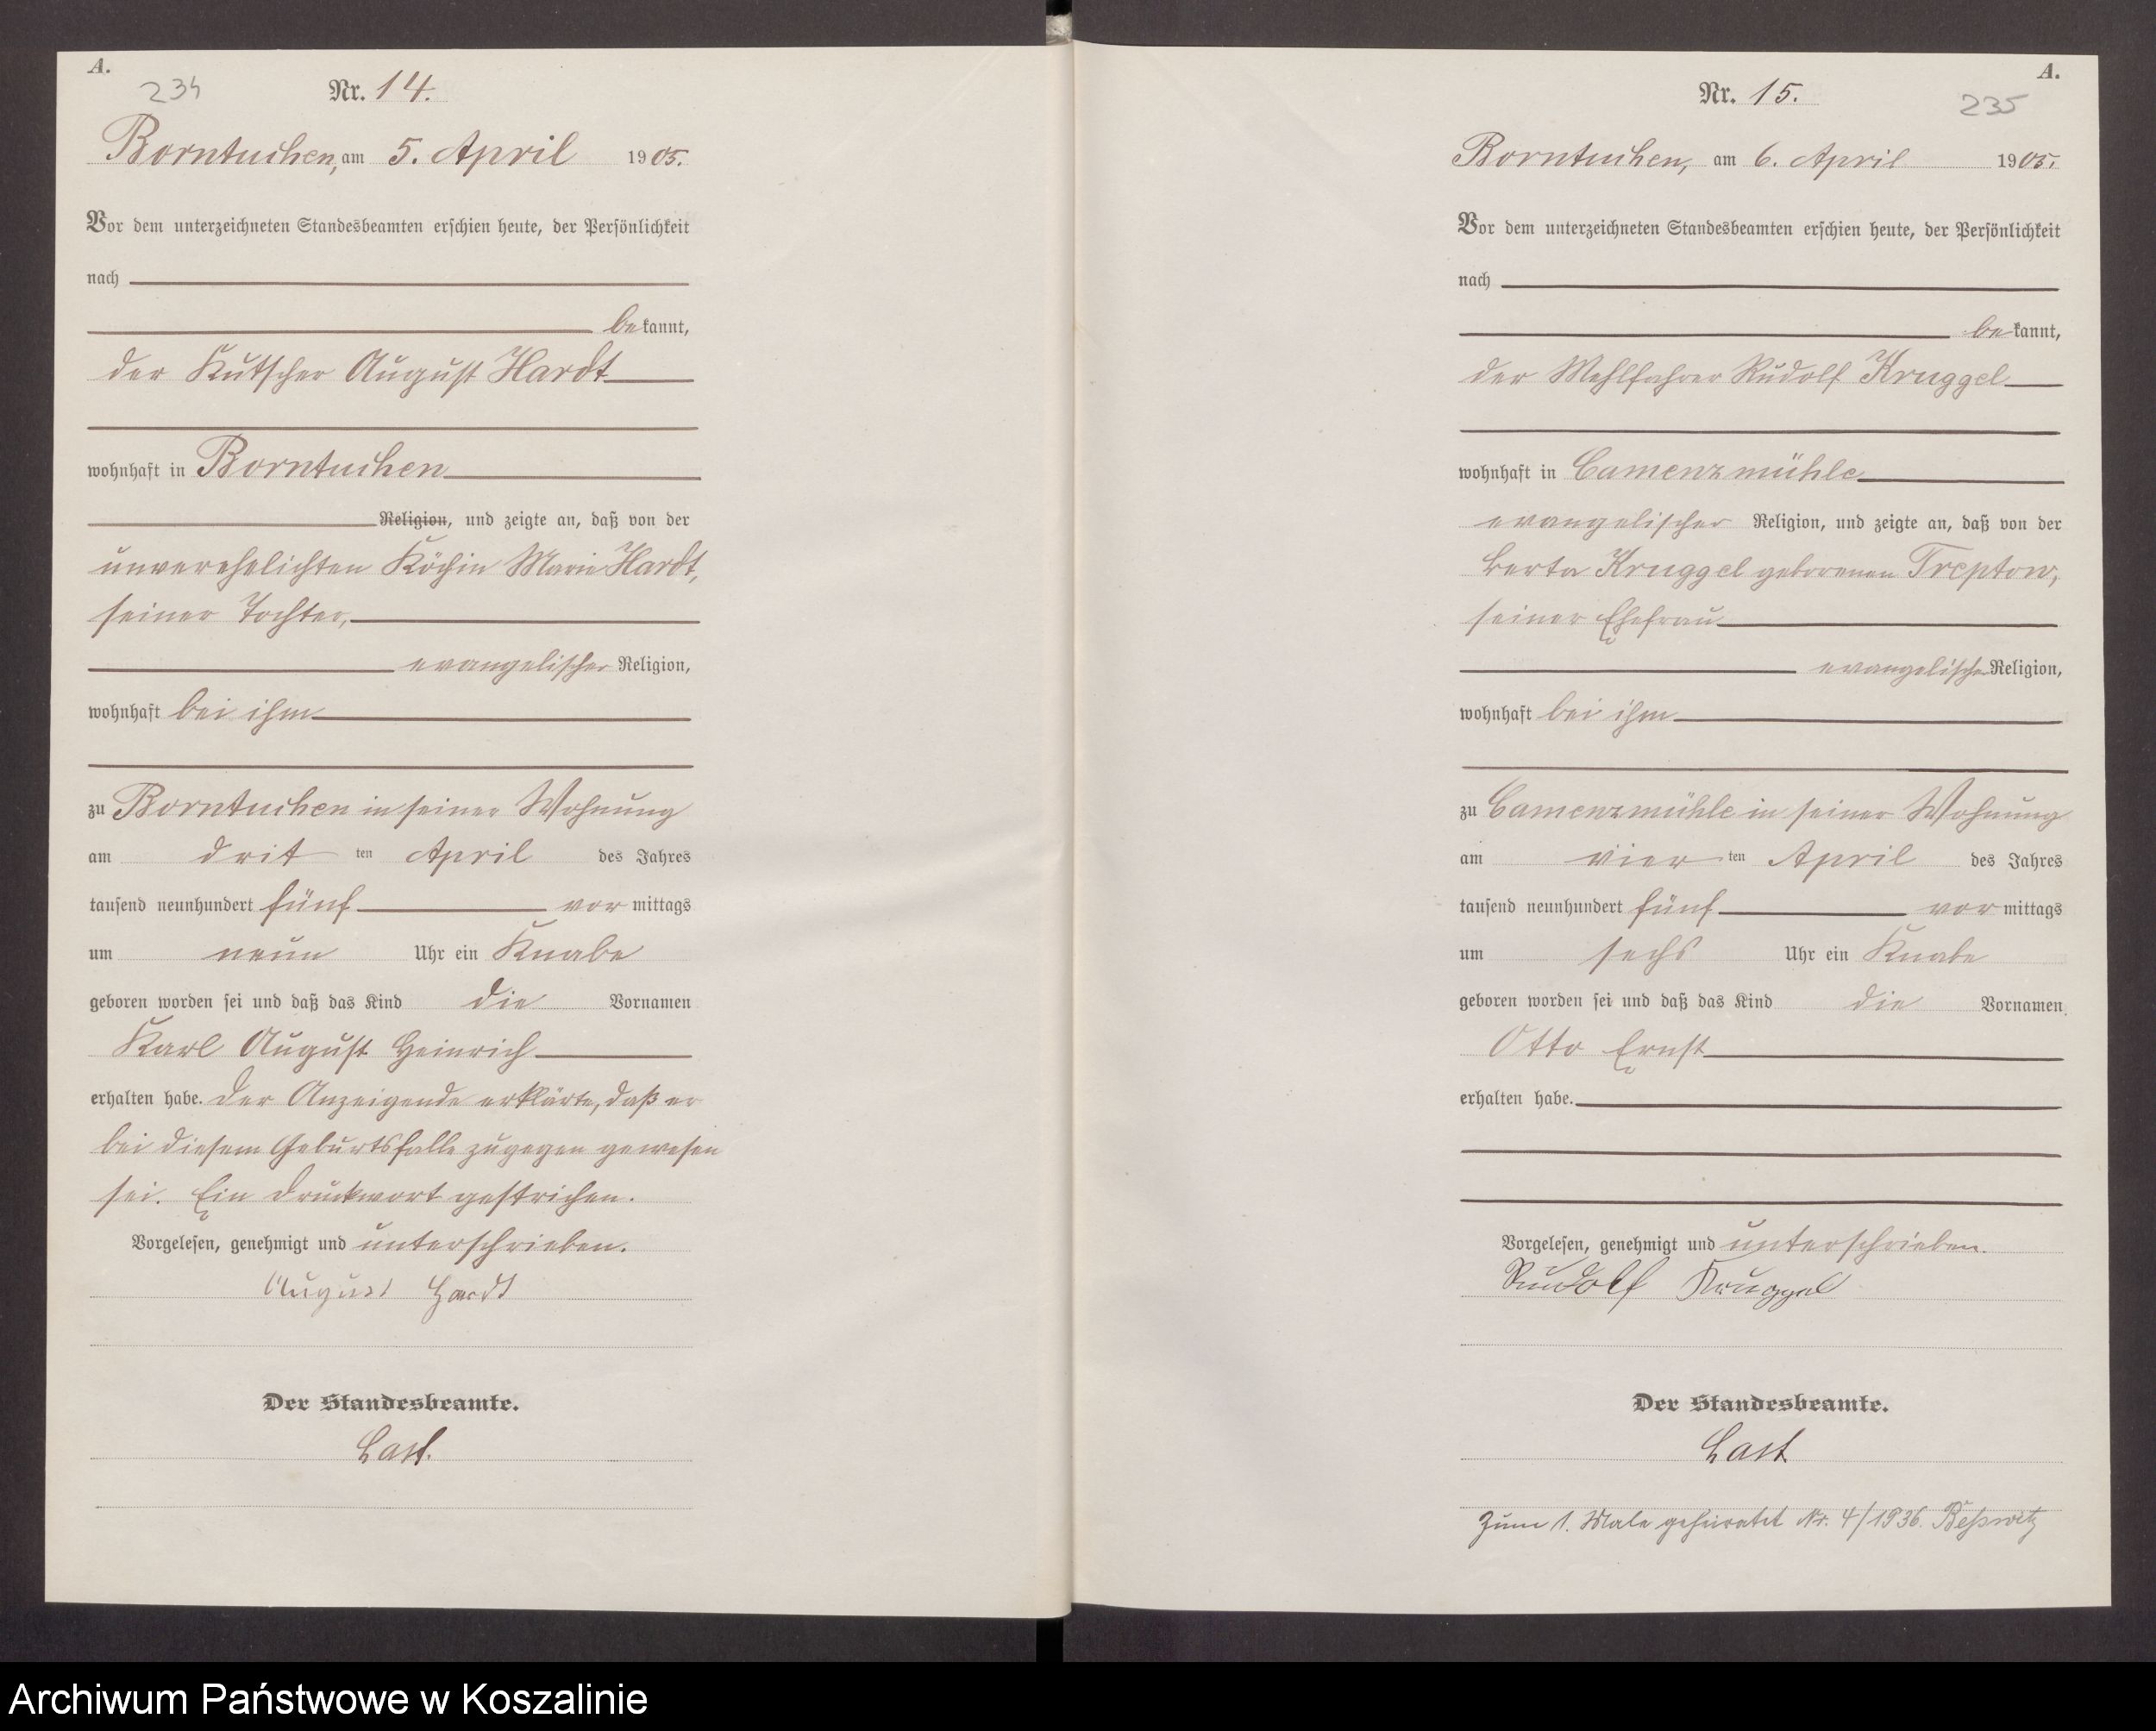 A.
234
Nr. 14.
Borntuchen, am 5. April 1905.
Vor dem unterzeichneten Standesbeamten erschien heute, der Persönlichkeit
nach
bekannt,
der Kutscher August Hardt
wohnhaft in Borntuchen
Religion, und zeigte an, daß von der
unverehelichten Köchin Marie Hardt,
seiner Tochter,
evangelischer Religion,
wohnhaft bei ihm
zu Borntuchen in seiner Wohnung
am dritten April des Jahres
tausend neunhundert fünf vormittags
um neun Uhr ein Knabe
geboren worden sei und daß das Kind die Vornamen
Karl August Heinrich
erhalten habe. Der Anzeigende erklärte, daß er
bei diesem Geburtsfalle zugegen gewesen
sei. Ein Druckwort gestrichen.
Vorgelesen, genehmigt und unterschrieben.
August Hardt
Der Standesbeamte.
Last.
A.
235
Nr. 15.
Borntuchen, am 6. April 1905.
Vor dem unterzeichneten Standesbeamten erschien heute, der Persönlichkeit
nach
bekannt,
der Mehlfahrer Rudolf Kruggel
wohnhaft in Camenzmühle
evangelischer Religion, und zeigte an, daß von der
Berta Kruggel geborenen Treptow,
seiner Ehefrau
evangelischer Religion,
wohnhaft bei ihm
zu Camenzmühle in seiner Wohnung
am vierten April des Jahres
tausend neunhundert fünf vormittags
um sechs Uhr ein Knabe
geboren worden sei und daß das Kind die Vornamen
Otto Ernst
erhalten habe.
Vorgelesen, genehmigt und unterschrieben.
Rudolf Kruggel
Der Standesbeamte.
Last
Zum 1. Male geheiratet Nr. 4/1936. Beßwitz
Archiwum Państwowe w Koszalinie